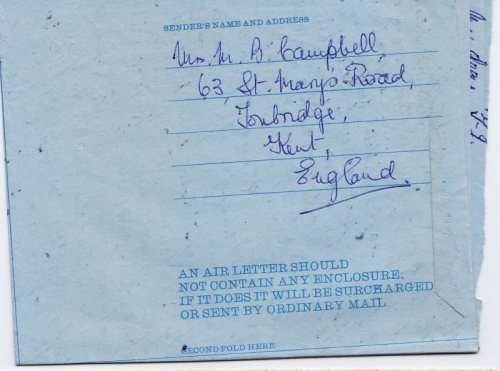 SENDER'S NAME AND ADDRESS
Mrs. M. B. Campbell,
63, St. Mary's Road,
Tonbridge,
Kent,
England.
AN AIR LETTER SHOULD
NOT CONTAIN ANY ENCLOSURE;
IF IT DOES IT WILL BE SURCHARGED
OR SENT BY ORDINARY MAIL
SECOND FOLD HERE